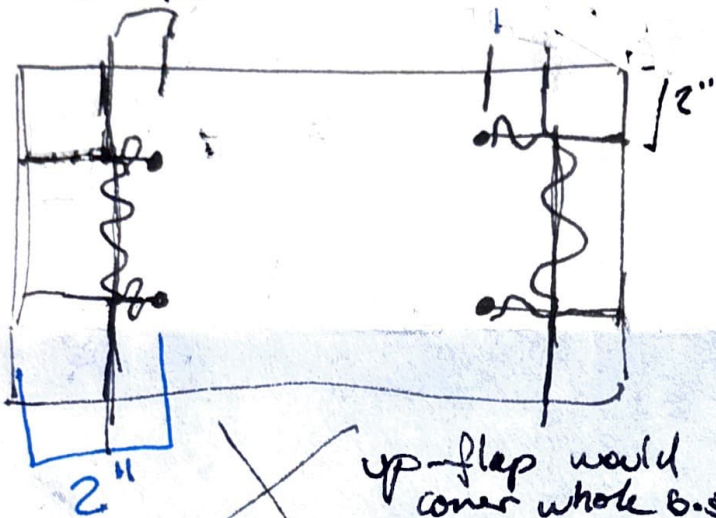 2"
2"
up-flap would
cover whole